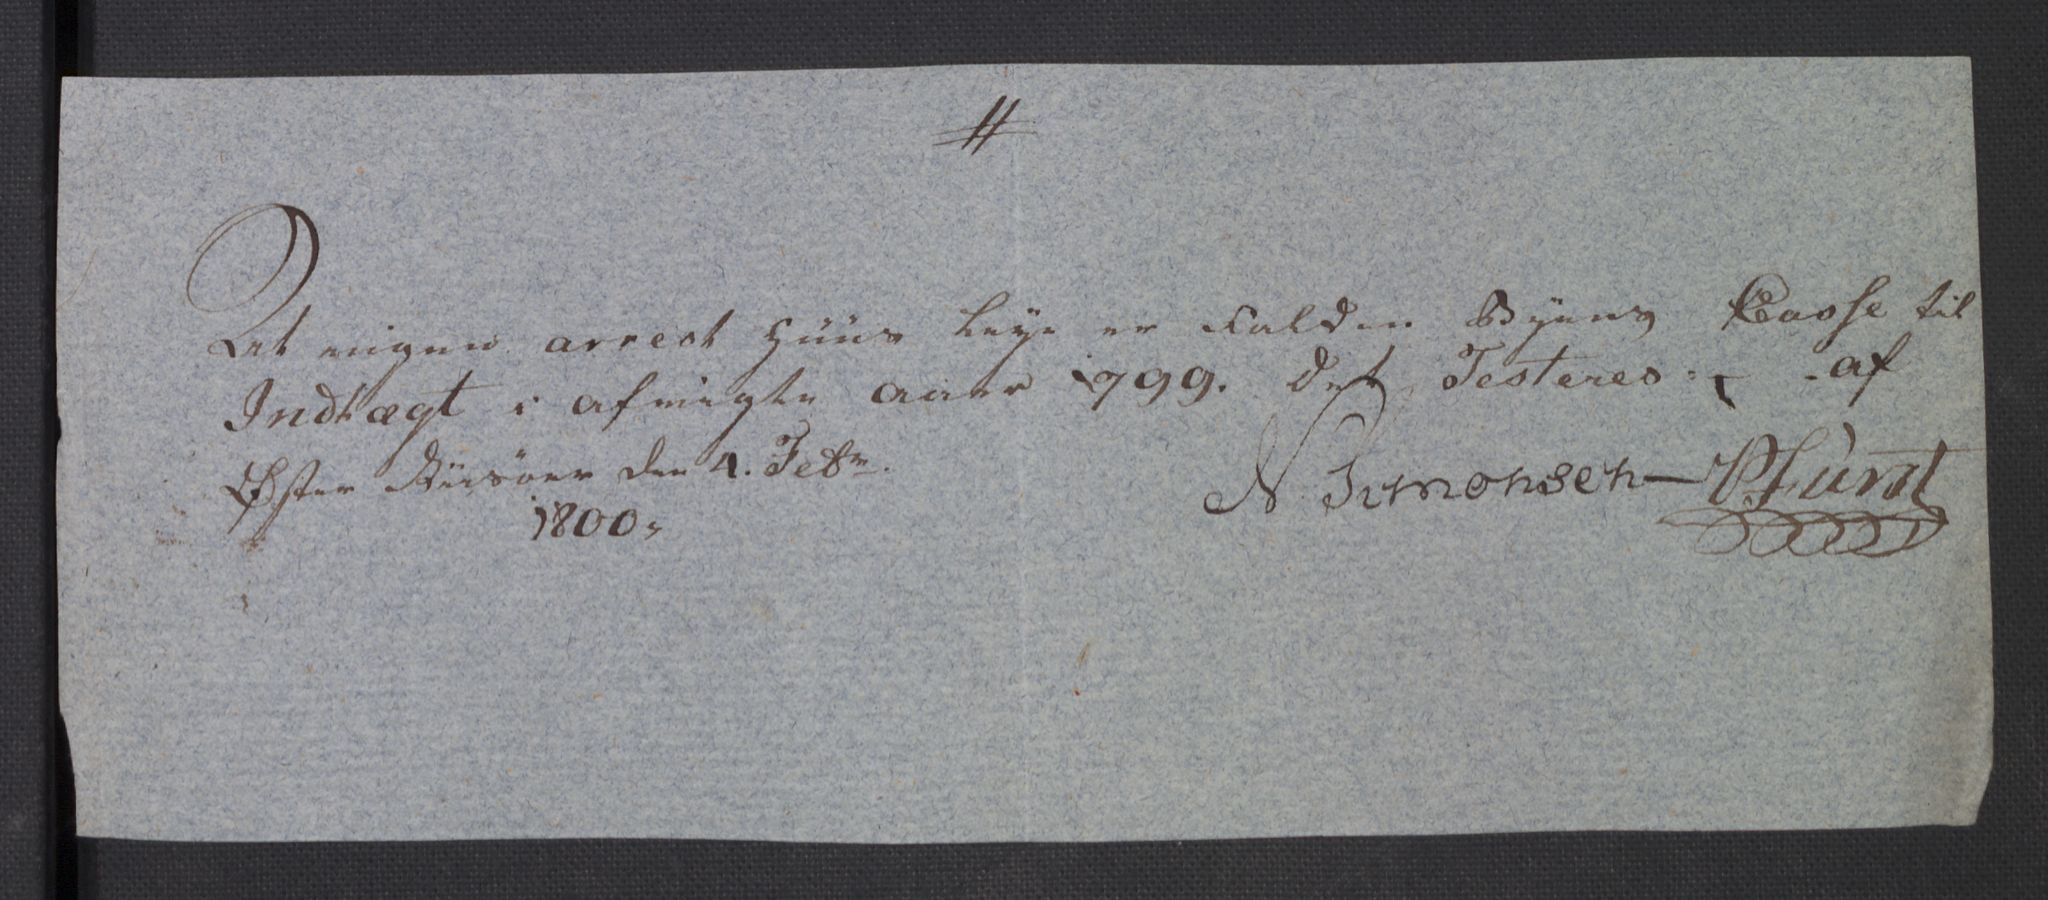 At ingen arrest Huus Leye er falden Byens Casse til
Indtægt i afvigte aar 1799. det Testeres - af
Øster Riisøer den 4. Febr.
1800.
N Simonsen - P Furst